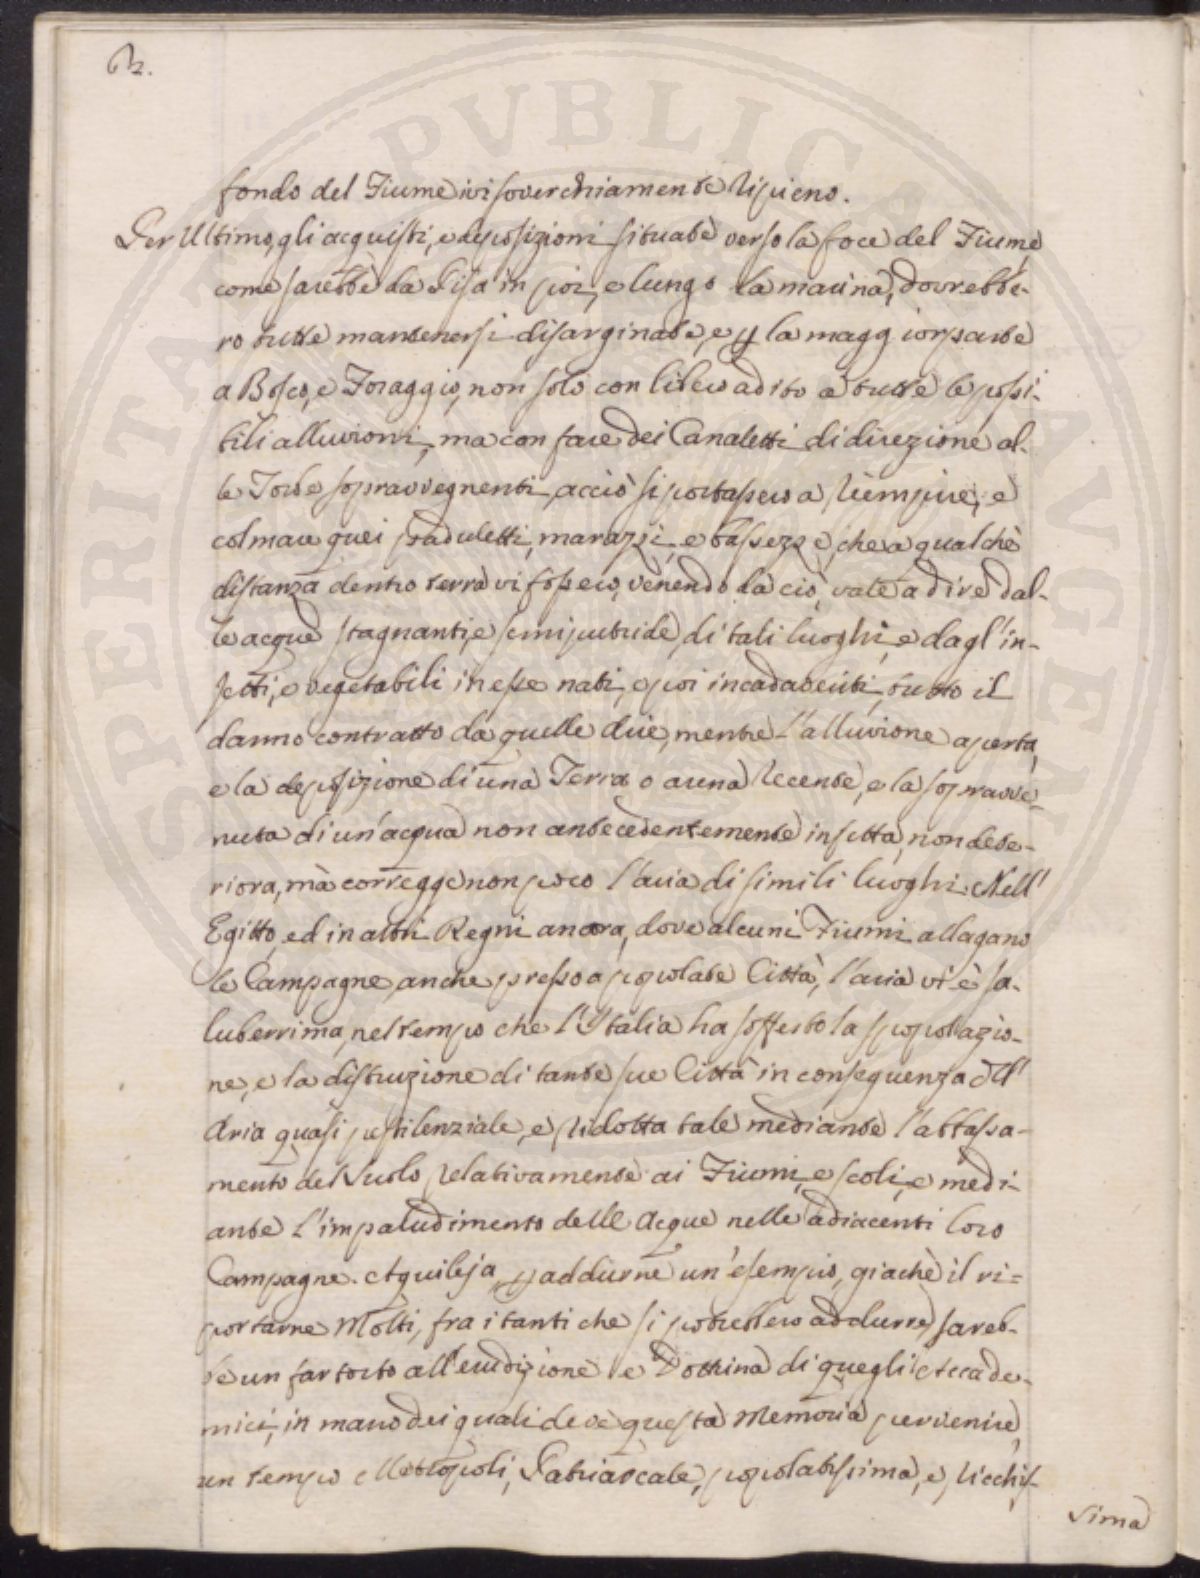 62.
fondo del Fiume ivi soverchiamente ripieno.
Per Ultimo, gli acquisti, e deposizioni situate verso la foce del Fiume,
come sarebbe da Pisa in poi, e lungo la marina, dovrebbe-
ro tutte mantenersi disarginate, e p la maggior parte
a Bosco, e Foraggio, non solo con libero adito a tutte le possi-
bili alluvioni, ma con fare dei Canaletti di direzione al-
le Torbe sopravvegnenti, acciò si portassero a riempire, e
colmare quei paduletti, marazzi, e bassezze, che a qualche
distanza dentro terra vi fossero, venendo da ciò, vale a dire dal-
le acque stagnanti, e semiputride di tali luoghi, e dagl'in-
setti, e vegetabili in esse nati, e poi incadaveriti, tutto il
danno contratto da quelle Arie, mentre l'alluvione aperta,
e la deposizione di una Terra o arena recente, e la sopravve-
nuta di un'acqua non antecedentemente infetta, non dete-
riora, mà corregge non poco l'aria di simili luoghi. Nell'
Egitto, ed in altri Regni ancora, dove alcuni Fiumi allagano
le Campagne, anche presso a popolate Città, l'aria vi è sa-
luberrima, nel tempo che l'Italia ha sofferto la spopolazio-
ne, e la distruzione di tante sue Città in conseguenza dell'
Aria quasi pestilenziale, e ridotta tale mediante l'abbassa-
mento del Suolo relativamente ai Fiumi, e scoli, e medi-
ante l'impaludimento delle Acque nelle adiacenti loro
Campagne. Aquileja, p addurne un'esempio, giachè il ri=
portarne Molti, fra i tanti che si potrebbero addurre, sareb-
be un far torto all'erudizione e Dottrina di quegli Accade-
mici, in mano dei quali deve questa Memoria pervenire,
un tempo Metropoli, Patriarcale, popolatissima, e ricchis-
sima
PVBLICAE
AVGENDAE